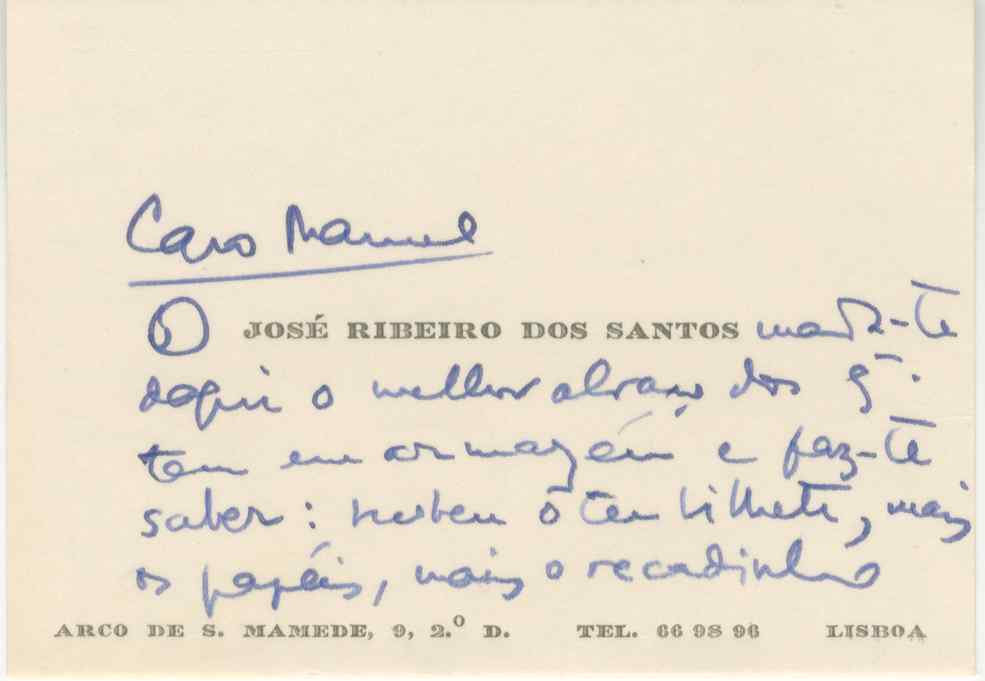 Caro Manuel
O JOSÉ RIBEIRO DOS SANTOS manda-te
daqui o melhor abraço dos q̄.
tem em armazém e faz-te
saber: recebeu o teu bilhete, mais
os papéis, mais o recadinho
ARCO DE S. MAMEDE, 9, 2.º D. TEL. 66 98 96 LISBOA